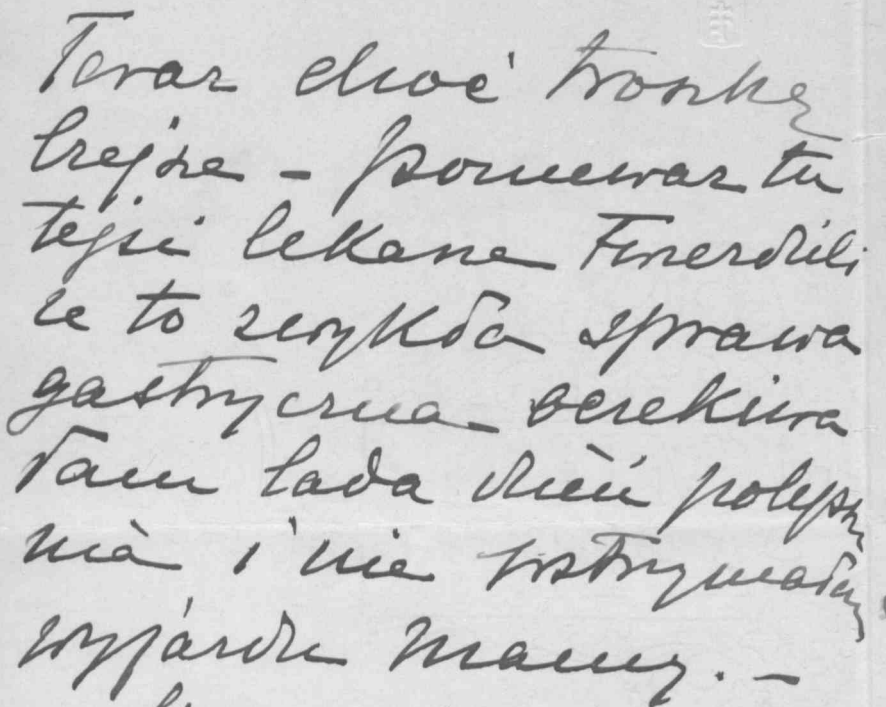 Teraz choć troszkę
lżejsze – ponieważ tu
tejsi lekarze twierdzili
że to zwykła sprawa
gastryczna – oczekiwa
łam lada dzień polepsze
nia i nie wstrzymałam
wyjazdu Mamy. –